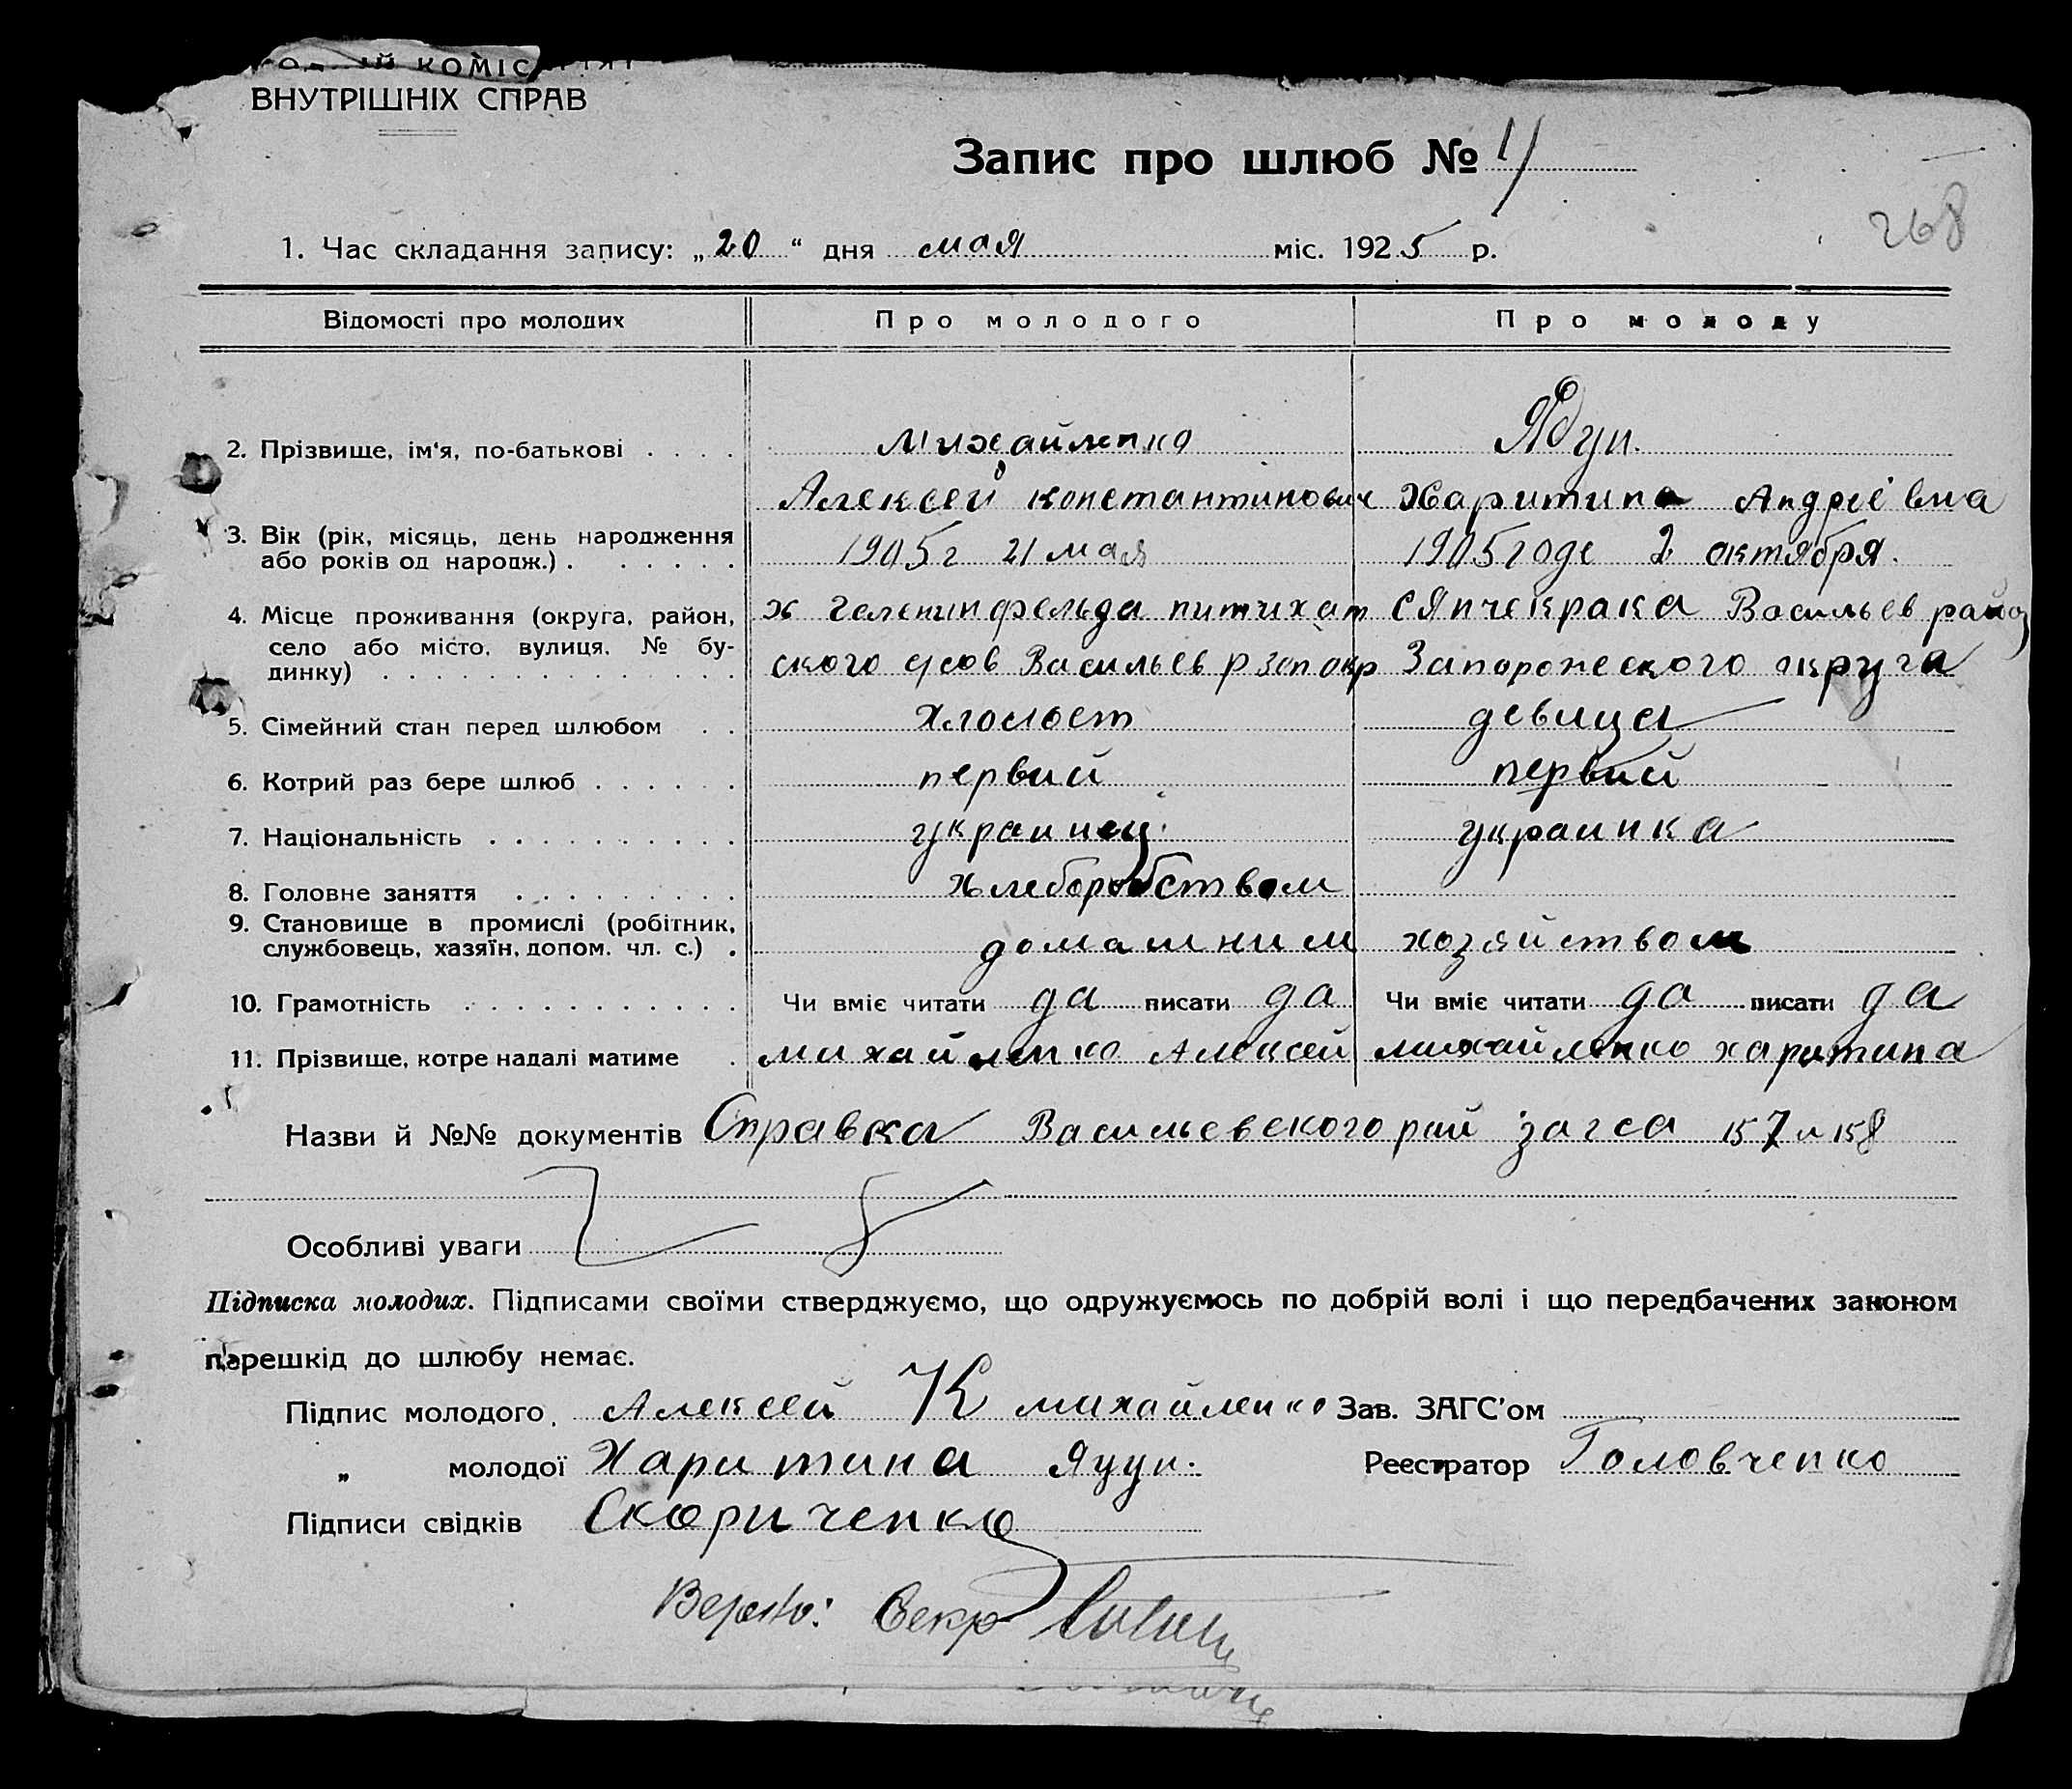 ВНУТРІШНІХ СПРАВ
Запис про шлюб № 11
268
1. Час складання запису: „20“ дня мая міс. 1925 р.
Відомості про молодих Про молодого Про молоду
2. Прізвище, ім'я, по-батькові Михайленко Ядун.
Алексей Константинович Харитина Андреівна
3. Вік (рік, місяць, день народження
або років од народж.) 1905 г 21 мая 1905 годе 2 октября.
4. Місце проживання (округа, район, х питихат с Янчекрака Васильев район
село або місто, вулиця, № бу-
динку) ского Васильев р зап окр Запорожского округа
5. Сімейний стан перед шлюбом Холост девица
6. Котрий раз бере шлюб первий первий
7. Національність украинец. украинка
8. Головне заняття Хлеборобством
9. Становище в промислі (робітник,
службовець, хазяїн, допом. чл. с.) домашним хозяйством
10. Грамотність Чи вміє читати да писати да Чи вміє читати да писати да
11. Прізвище, котре надалі матиме михайленко Алексей михайленко харитина
Назви й №№ документів Справка Васильевского рай загса 157 и 158
Особливі уваги
Підписка молодих. Підписами своїми стверджуємо, що одружуємось по добрій волі і що передбачених законом
перешкід до шлюбу немає.
Підпис молодого Алексей К михайленко Зав. ЗАГС'ом
„ молодої Харитина Реєстратор Головченко
Підписи свідків Скориченко
Верно: Секр